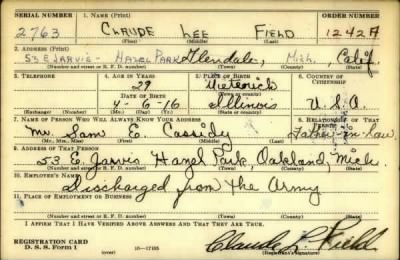 SERIAL NUMBER 1. NAME (Print) ORDER NUMBER
2763 CLAUDE LEE FIELD 12427A
(First) (Middle) (Last)
2. ADDRESS (Print)
53 E JARVIS - HAZEL PARK Glendale, Mich. Calif
(Number and street or R. F. D. number) (Town) (County) (State)
3. TELEPHONE 4. AGE IN YEARS 5. PLACE OF BIRTH 6. COUNTRY OF CITIZENSHIP
29 Dieterich
DATE OF BIRTH (Town or county)
4-6-16 Illinois U.S.A.
(Exchange) (Number) (Mo.) (Day) (Yr.) (State or country)
7. NAME OF PERSON WHO WILL ALWAYS KNOW YOUR ADDRESS 8. RELATIONSHIP OF THAT PERSON
Mr. Sam E. Cassidy Father-in-law
(Mr., Mrs., Miss) (First) (Middle) (Last)
9. ADDRESS OF THAT PERSON
53 E. Jarvis Hazel Park, Oakland, Mich.
(Number and street or R. F. D. number) (Town) (County) (State)
10. EMPLOYER'S NAME
Discharged from the Army
11. PLACE OF EMPLOYMENT OR BUSINESS
(Number and street or R. F. D. number) (Town) (County) (State)
I AFFIRM THAT I HAVE VERIFIED ABOVE ANSWERS AND THAT THEY ARE TRUE.
REGISTRATION CARD
D. S. S. Form 1 16-17105 Claude L. Field
(over) (Registrant's signature)